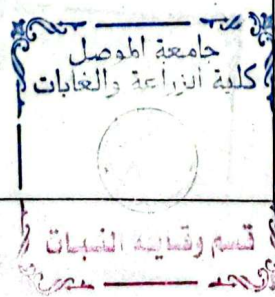 جامعة الموصل
كلية الزراعة والغابات
قسم وقاية النبات